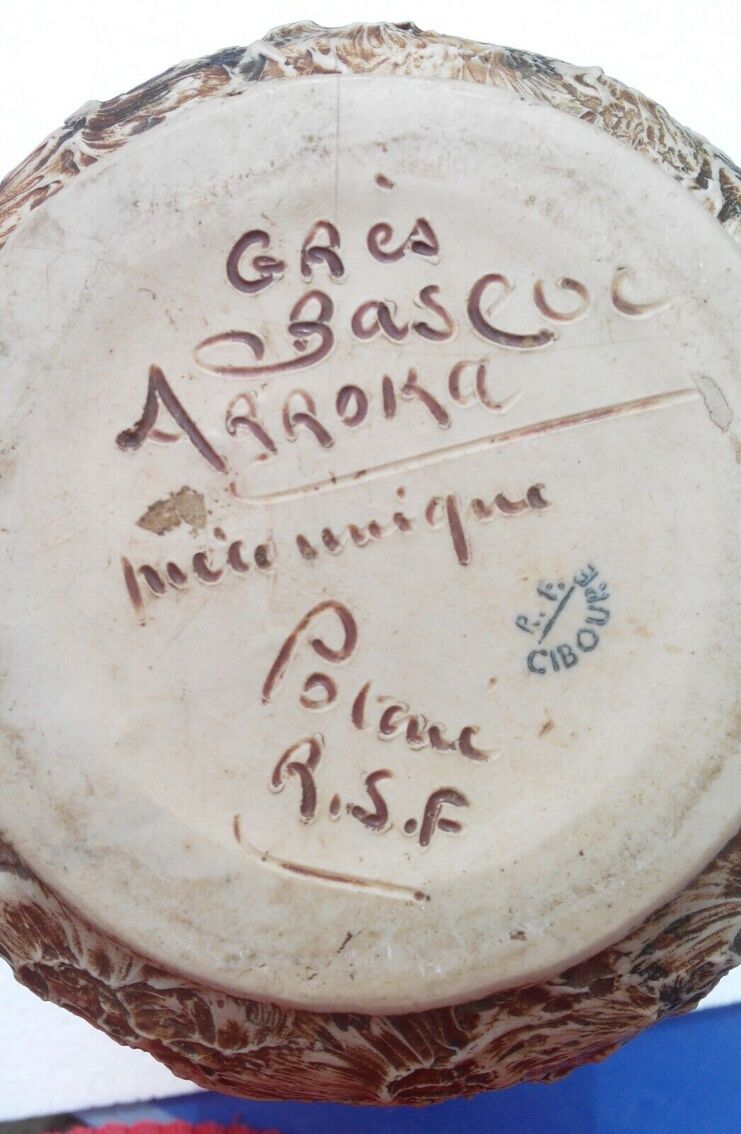 GRès
Basque
ARROKA
pièce unique
R.F.
CIBOURE
R.S.F